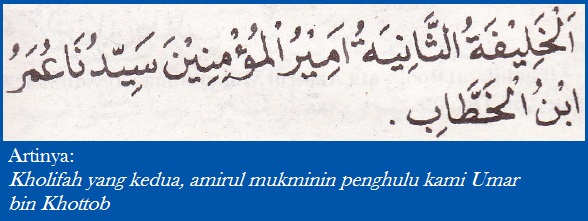 اَلْخَلِيْفَةُ الثَّانِيَةُ اَمِيْرُ الْمُؤْمِنِيْنَ سَيِّدُنَا عُمَرُ
ابْنُ الْخَطَّابِ .
Artinya:
Kholifah yang kedua, amirul mukminin penghulu kami Umar
bin Khottob